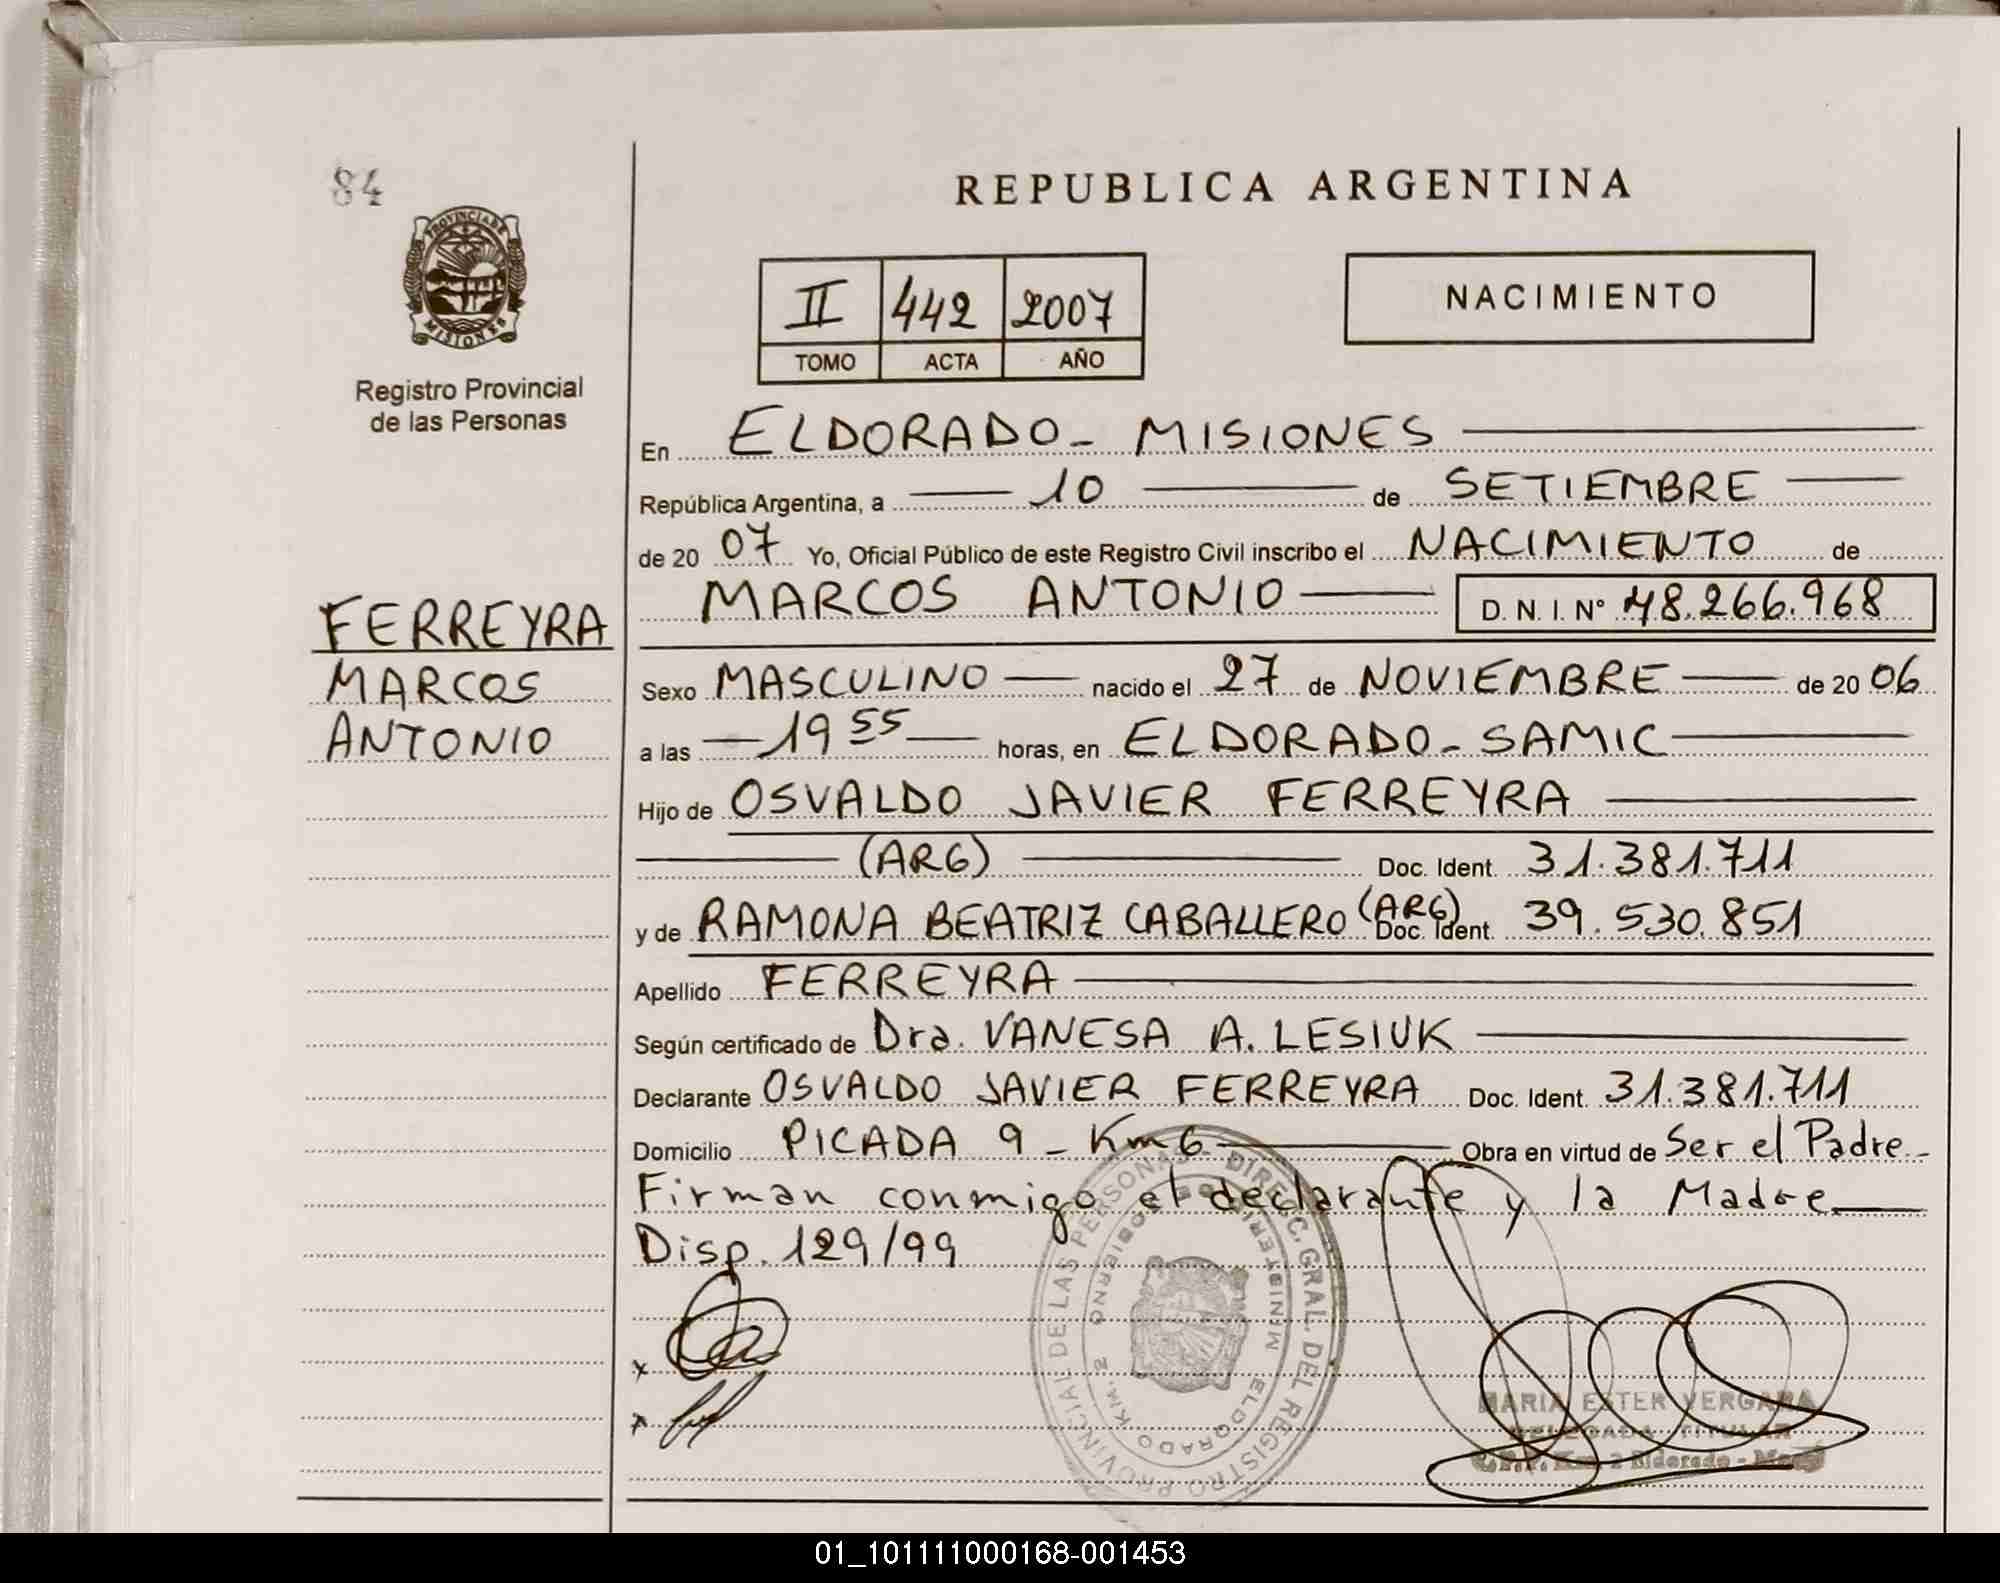 84
REPUBLICA ARGENTINA
PROVINCIA DE
MISIONES
Registro Provincial
de las Personas
II 442 2007
TOMO ACTA AÑO
NACIMIENTO
En ELDORADO - MISIONES
República Argentina, a 10 de SETIEMBRE
de 20 07 Yo, Oficial Público de este Registro Civil inscribo el NACIMIENTO de
MARCOS ANTONIO D. N. I. N° 48.266.968
FERREYRA
MARCOS
ANTONIO
Sexo MASCULINO nacido el 27 de NOVIEMBRE de 20 06
a las 19 55 horas, en ELDORADO - SAMIC
Hijo de OSVALDO JAVIER FERREYRA
(ARG) Doc. Ident. 31.381.711
y de RAMONA BEATRIZ CABALLERO (ARG) Doc. Ident. 39.530.851
Apellido FERREYRA
Según certificado de Dra. VANESA A. LESIUK
Declarante OSVALDO JAVIER FERREYRA Doc. Ident. 31.381.711
Domicilio PICADA 9 - Km 6 Obra en virtud de Ser el Padre.-
Firman conmigo el declarante y la Madre
Disp. 129/99
REGISTRO PROVINCIAL DE LAS PERSONAS - DIRECC. GRAL. DEL
MINISTERIO DE GOBIERNO
KM. 2 ELDORADO
x
x
MARIA ESTER VERGARA
DELEGADA TITULAR
Km. 2 Eldorado -
01_101111000168-001453